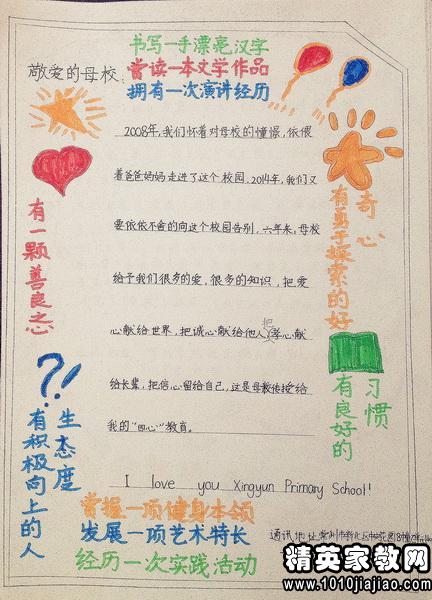 书写一手漂亮汉字
敬爱的母校:
尝读一本文学作品
拥有一次演讲经历
2008年,我们怀着对母校的憧憬,依偎
着爸爸妈妈走进了这个校园。2014年,我们又
要依依不舍的向这个校园告别。六年来,母校
给予我们很多的爱,很多的知识,把爱
心献给世界,把诚心献给他人,把孝心献
给长辈,把信心留给自己,这是母校传授给
我的“四心”教育。
I love you Xingyun Primary School!
有一颗善良之心
有积极向上的人
生态度
有勇于探索的好
奇心
有良好的
习惯
?!
掌握一项健身本领
发展一项艺术特长
经历一次实践活动
通讯地址
精英家教网
www.1010jiajiao.com